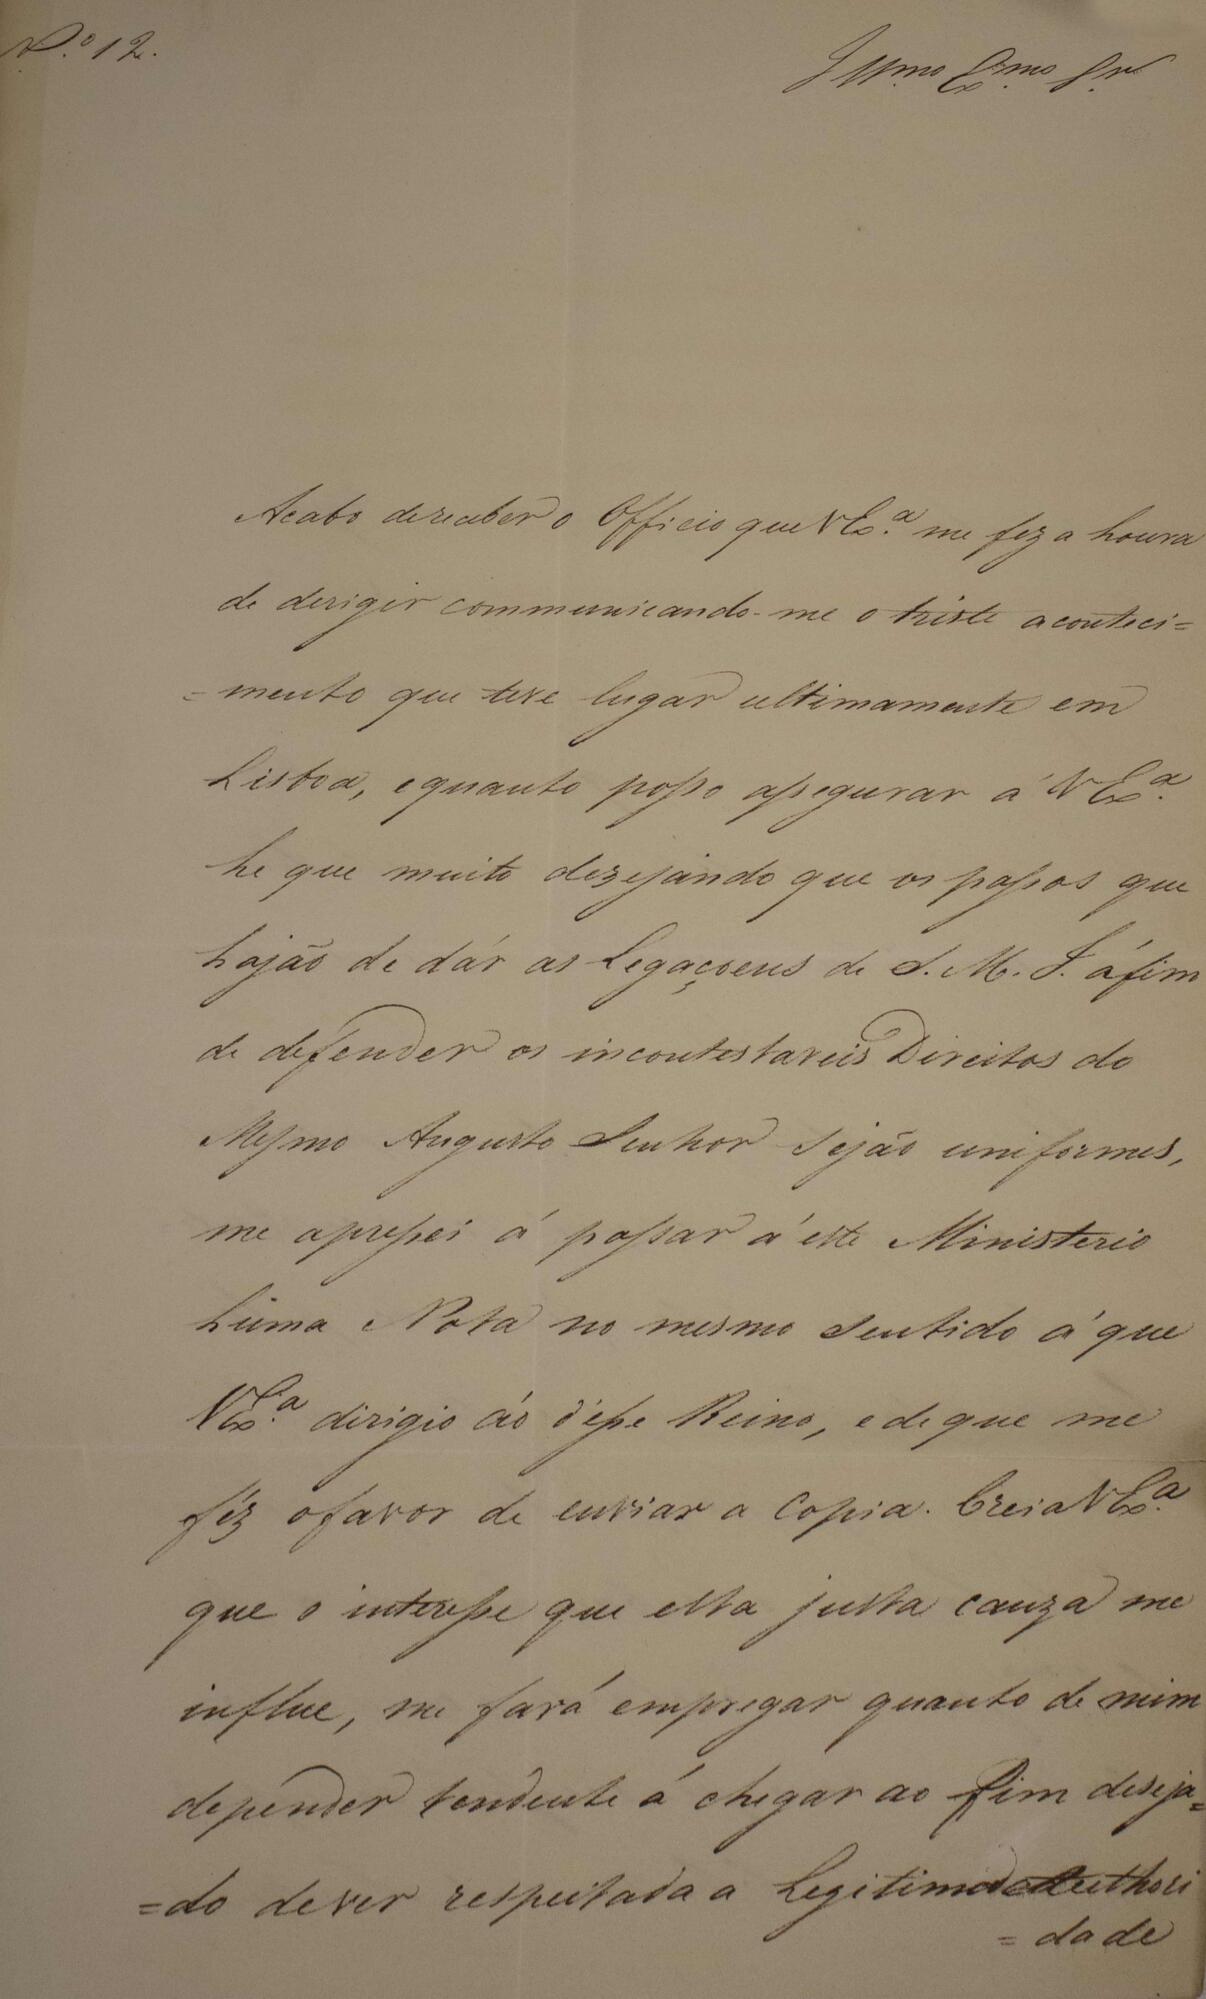 N.º 12.
Illmo Exmo Snr
Acabo de receber o Officio que V Ex.ª me fez a honra
de derigir communicando-me o triste aconteci=
=mento que teve lugar ultimamente em
Lisboa, e quanto posso assegurar á V Ex.ª
he que muito dezejando que os passos que
hajão de dár as Legaçoens de S. M. I. áfim
de defender os incontestaveis Direitos do
Mesmo Augusto Senhor sejão uniformes,
me apressei á passar á este Ministerio
huma Nota no mesmo sentido á que
V Ex.ª dirigio áo d'esse Reino, e de que me
féz o favor de enviar a Copia. Creia V Ex.ª
que o interesse que esta justa cauza me
influe, me fará empregar quanto de mim
depender tendente á chegar ao fim deseja=
=do de ver respeitada a Legitima Authori
=dade